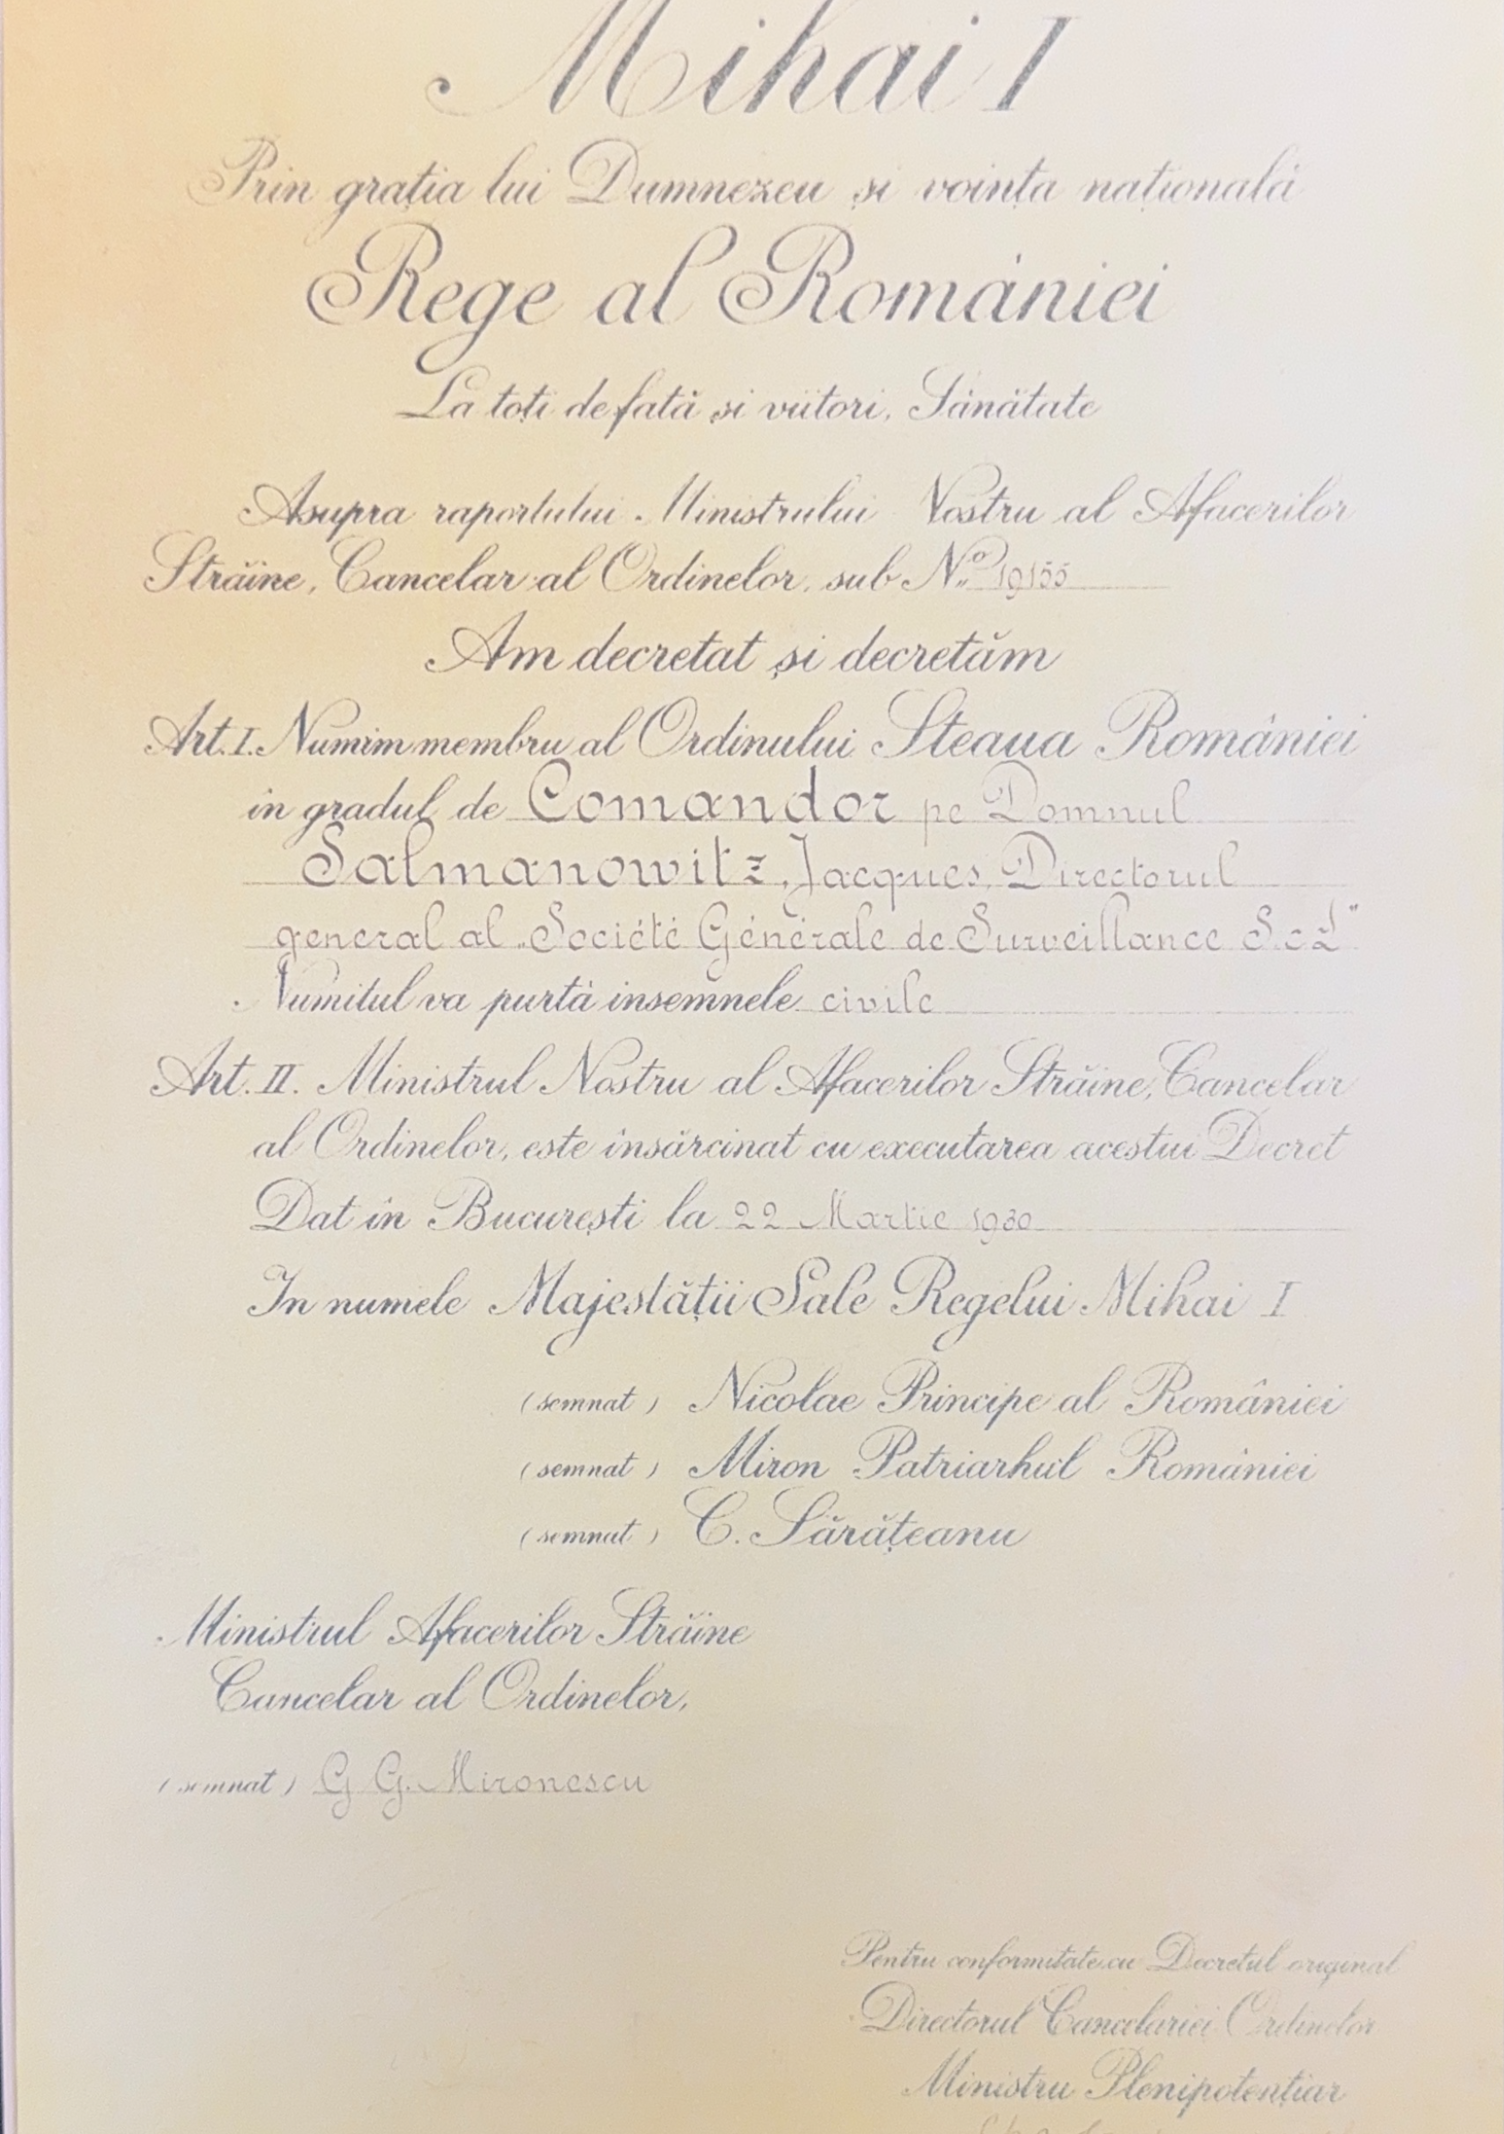 Mihai I
Prin grația lui Dumnezeu și voința națională
Rege al României
La toți de fată și viitori, Sănătate
Asupra raportului Ministrului Nostru al Afacerilor
Străine, Cancelar al Ordinelor, sub No 19155
Am decretat și decretăm
Art. I. Numim membru al Ordinului Steaua României
în gradul de Comandor pe Domnul
Salmanowitz, Jacques, Directorul
general al „Société Générale de Surveillance S.c.L"
Numitul va purtà insemnele civile
Art. II. Ministrul Nostru al Afacerilor Străine, Cancelar
al Ordinelor, este însărcinat cu executarea acestui Decret
Dat în București la 22 Martie 1930
In numele Majestății Sale Regelui Mihai I
(semnat) Nicolae Principe al României
(semnat) Miron Patriarhul României
(semnat) C. Sărățeanu
Ministrul Afacerilor Străine
Cancelar al Ordinelor,
(semnat) G G. Mironescu
Pentru conformitate cu Decretul original
Directorul Cancelariei Ordinelor
Ministru Plenipotențiar